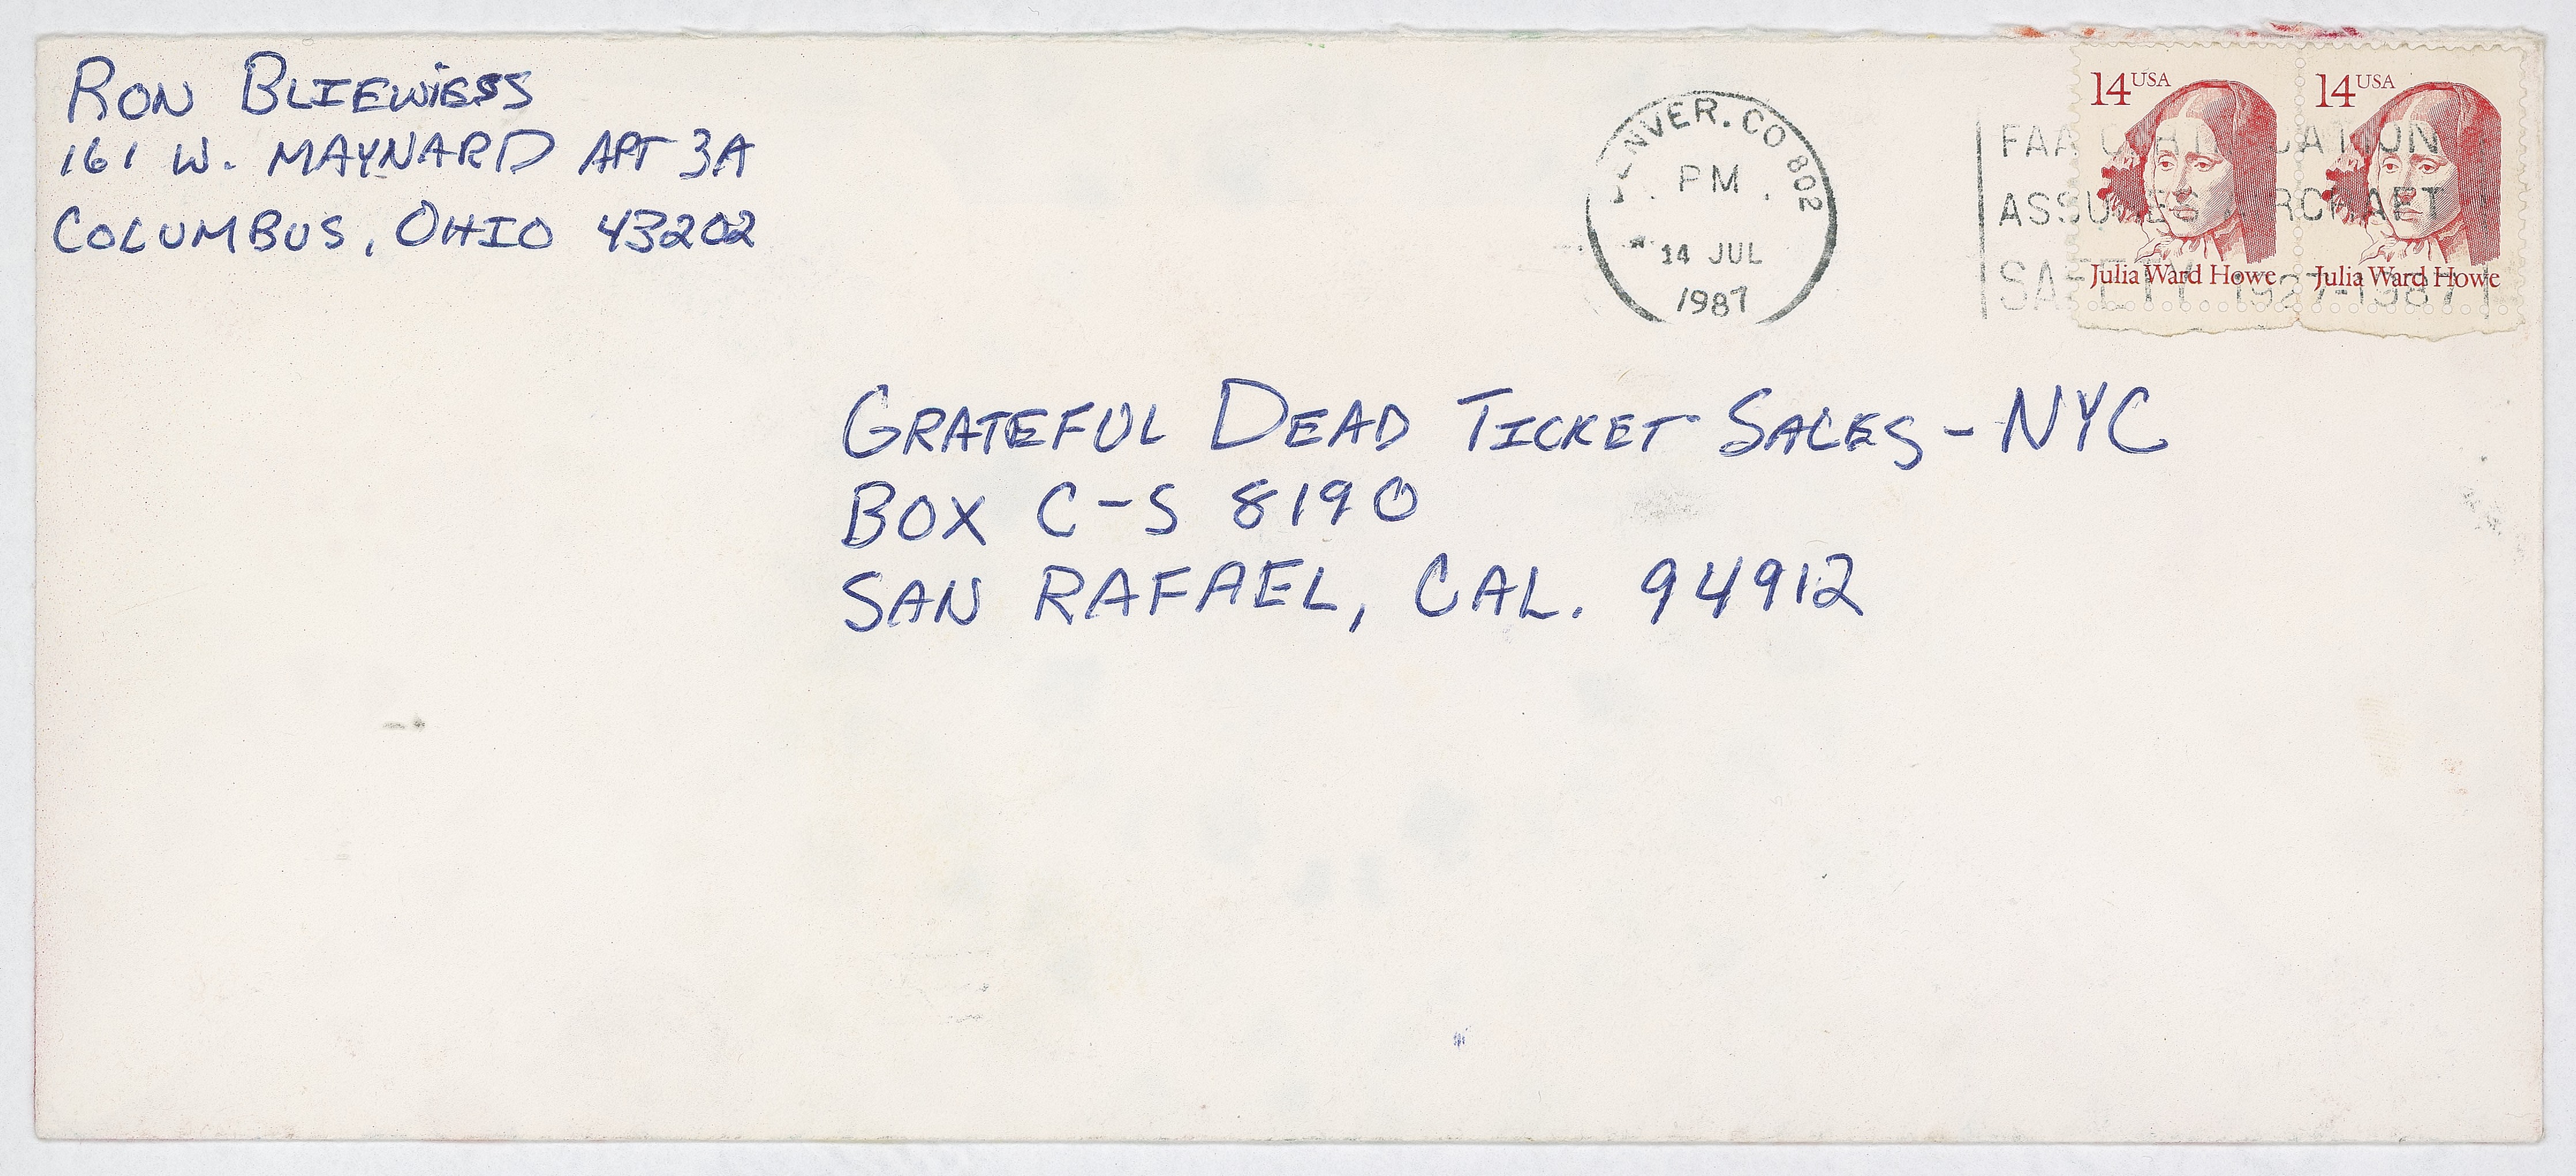 RON BLIEWIESS
161 W. MAYNARD APT 3A
COLUMBUS, OHIO 43202
DENVER. CO 802
PM
14 JUL
1987
FAA CERTIFICATION
ASSURES AIRCRAFT
SAFETY. 1927-1987
14 USA
Julia Ward Howe
14 USA
Julia Ward Howe
GRATEFUL DEAD TICKET SALES - NYC
BOX C-S 8190
SAN RAFAEL, CAL. 94912